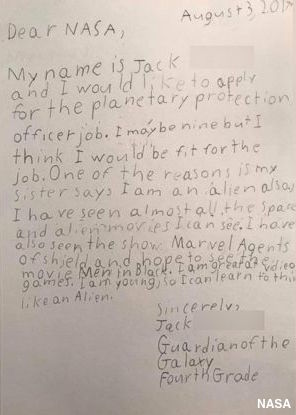 August 3, 2017
Dear NASA,
My name is Jack
and I would like to apply
for the planetary protection
officer job. I may be nine but I
think I would be fit for the
job. One of the reasons is my
sister says I am an alien also,
I have seen almost all the space
and alien movies I can see. I have
also seen the show Marvel Agents
of shield and hope to see the
movie Men in Black. I am great at vdieo
games. I am young, so I can learn to think
like an Alien.
Sincerely,
Jack
Guardian of the
Galaxy
Fourth Grade
NASA